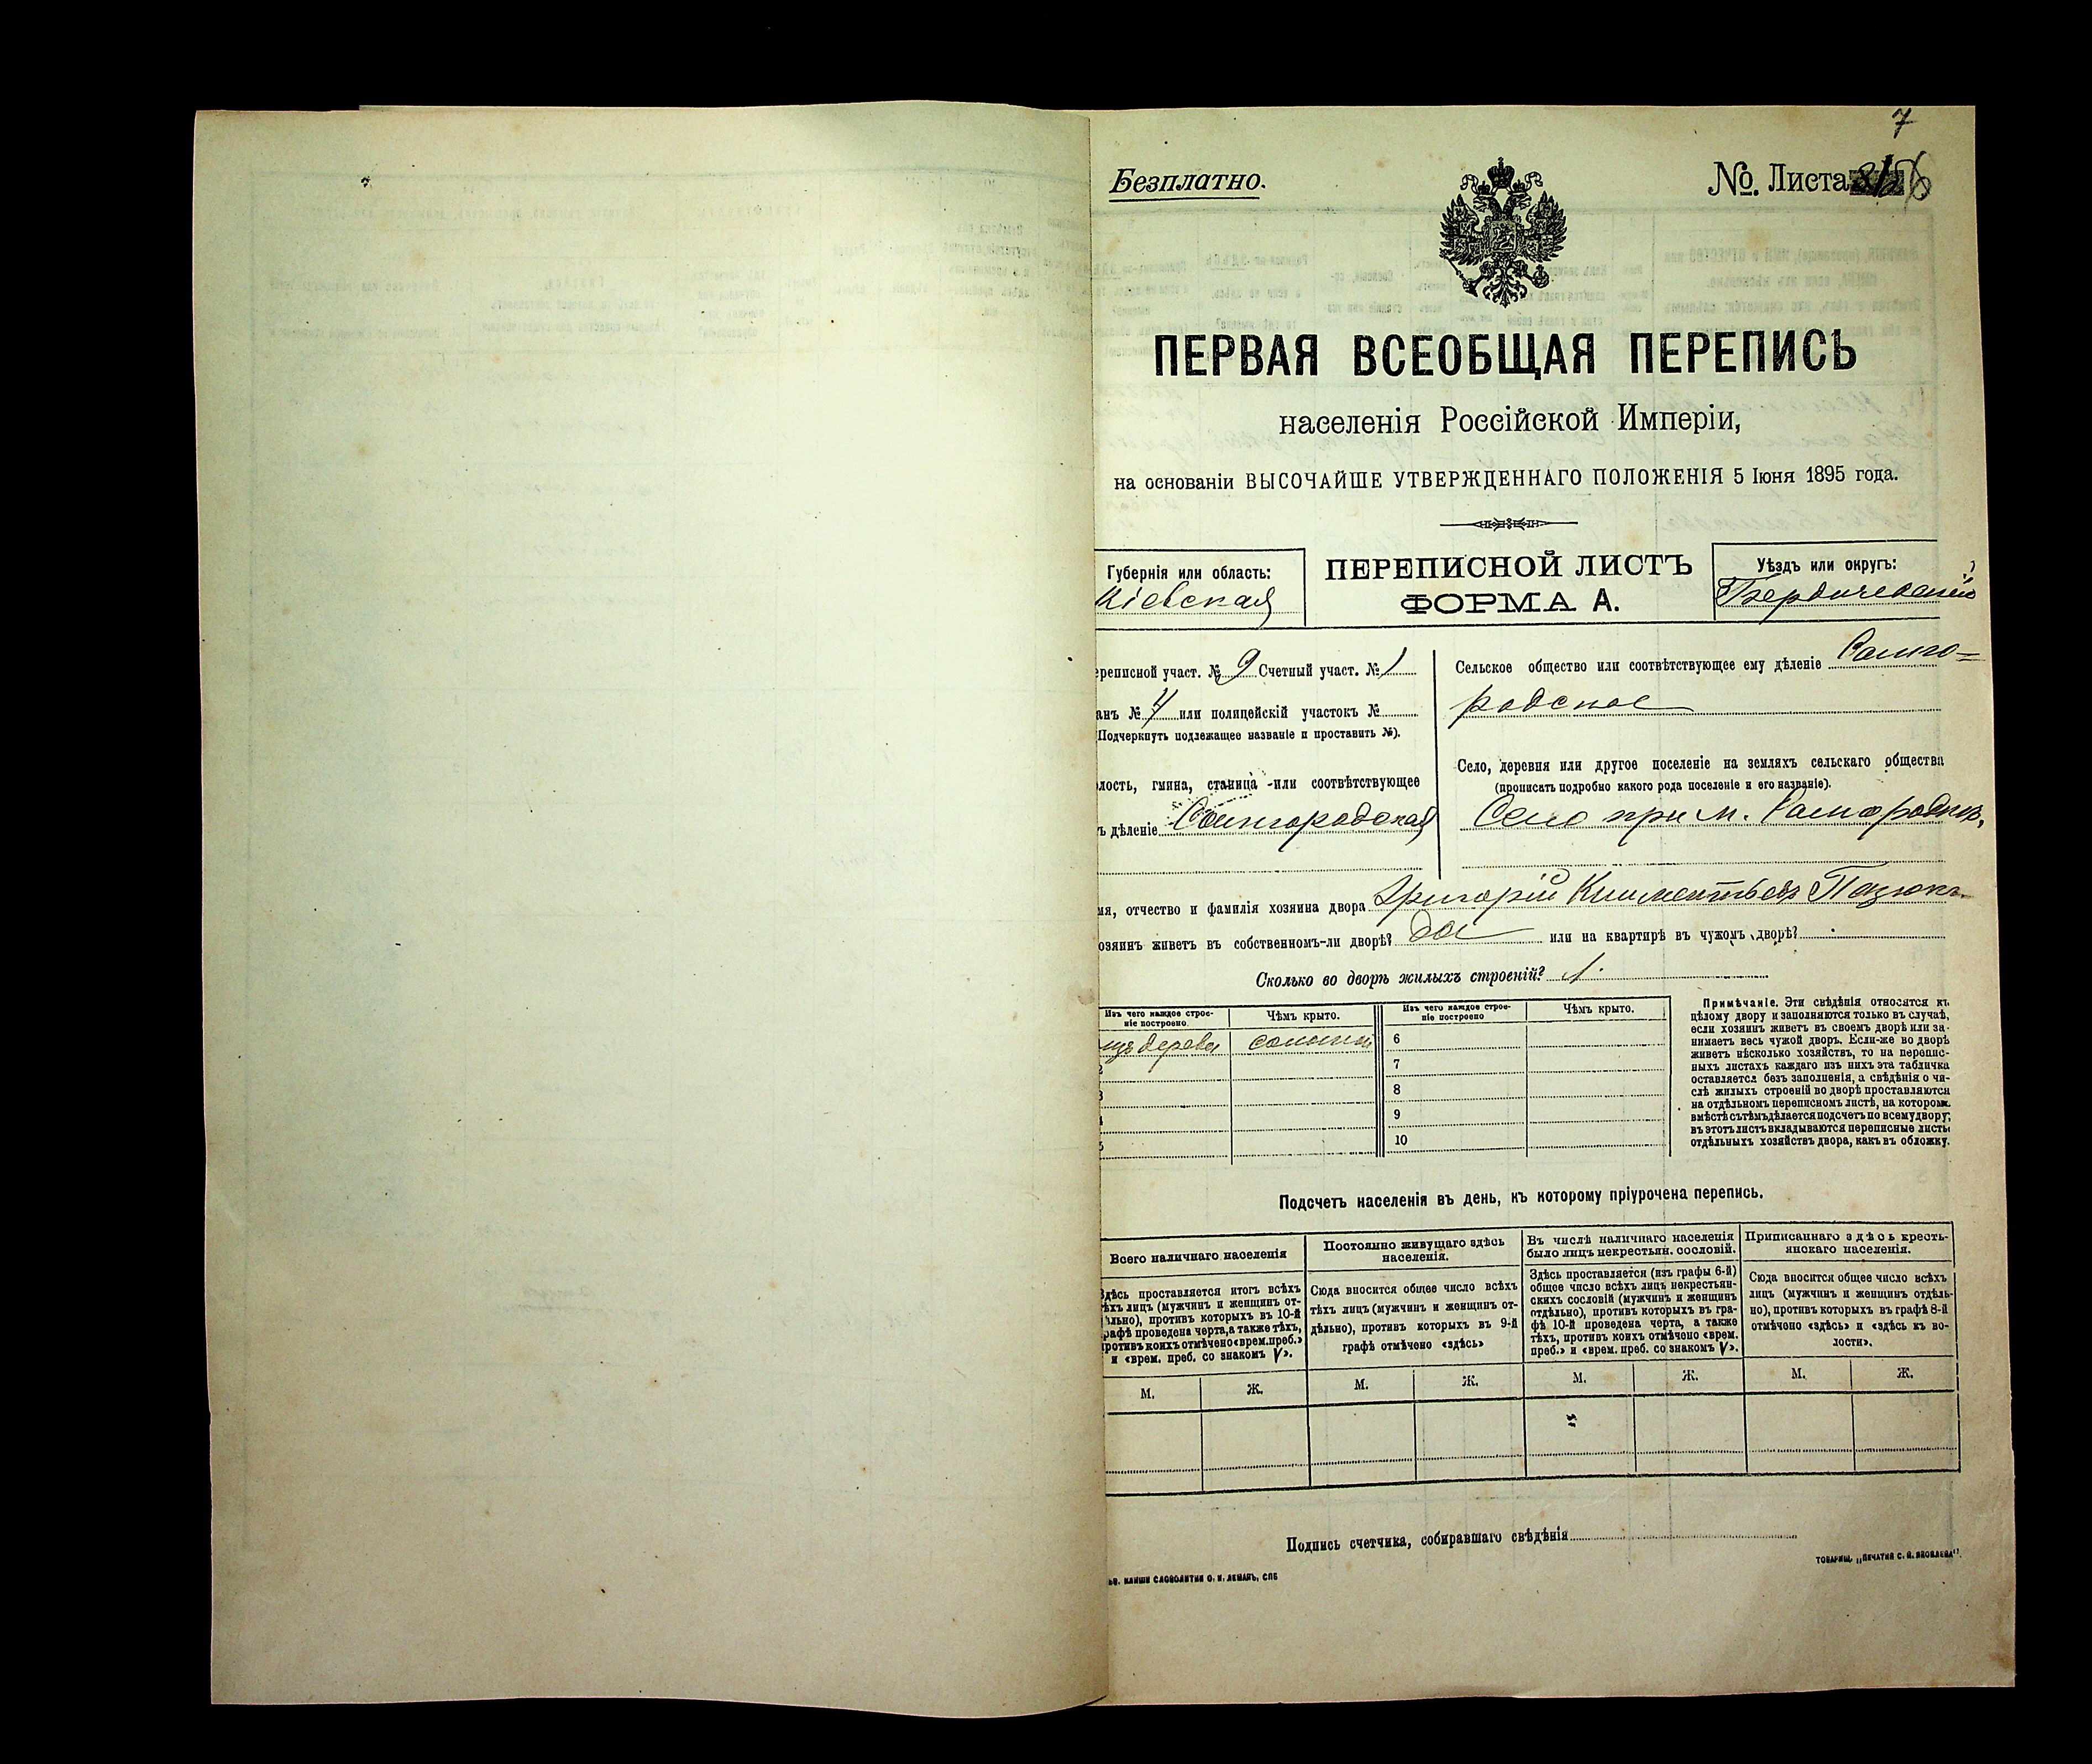 7
Безплатно.
№. Листа
ПЕРВАЯ ВСЕОБЩАЯ ПЕРЕПИСЬ
населенія Россійской Имперіи,
на основаніи ВЫСОЧАЙШЕ УТВЕРЖДЕННАГО ПОЛОЖЕНІЯ 5 Іюня 1895 года.
Губернія или область:
Кіевская
ПЕРЕПИСНОЙ ЛИСТЪ
ФОРМА А.
Уѣздъ или округъ:
Бердичевскій
ереписной участ. № 9 Счетный участ. № 1
анъ № 4 или полицейскій участокъ №
(Подчеркнуть подлежащее названіе и проставить №).
лость, гмина, станица или соотвѣтствующее
ъ дѣленіе Самгородская
Сельское общество или соотвѣтствующее ему дѣленіе Самго=
родское
Село, деревня или другое поселеніе на земляхъ сельскаго общества
(прописать подробно какого рода поселеніе и его названіе).
Село при м. Самгородкѣ,
мя, отчество и фамилія хозяина двора Григорій Климентьевъ Пазюкъ
озяинъ живетъ въ собственномъ-ли дворѣ? да или на квартирѣ въ чужомъ дворѣ?
Сколько во дворѣ жилыхъ строеній? 1.
Изъ чего каждое строе-
ніе построено
Чѣмъ крыто.
Изъ чего каждое строе-
ніе построено
Чѣмъ крыто.
изъ дерева соломой
6
2
7
3
8
4
9
5
10
Примѣчаніе. Эти свѣдѣнія относятся къ
цѣлому двору и заполняются только въ случаѣ,
если хозяинъ живетъ въ своемъ дворѣ или за-
нимаетъ весь чужой дворъ. Если-же во дворѣ
живетъ нѣсколько хозяйствъ, то на перепис-
ныхъ листахъ каждаго изъ нихъ эта табличка
оставляется безъ заполненія, а свѣдѣнія о чи-
слѣ жилыхъ строеній во дворѣ проставляются
на отдѣльномъ переписномъ листѣ, на которомъ
вмѣстѣ съ тѣмъ дѣлается подсчетъ по всему двору;
въ этотъ листъ вкладываются переписные листы
отдѣльныхъ хозяйствъ двора, какъ въ обложку.
Подсчетъ населенія въ день, къ которому пріурочена перепись.
Всего наличнаго населенія
Здѣсь проставляется итогъ всѣхъ
тѣхъ лицъ (мужчинъ и женщинъ от-
дѣльно), противъ которыхъ въ 10-й
графѣ проведена черта, а также тѣхъ,
противъ коихъ отмѣчено «врем. преб.»
и «врем. преб. со знакомъ V».
Постоянно живущаго здѣсь
населенія.
Сюда вносится общее число всѣхъ
тѣхъ лицъ (мужчинъ и женщинъ от-
дѣльно), противъ которыхъ въ 9-й
графѣ отмѣчено «здѣсь»
Въ числѣ наличнаго населенія
было лицъ некрестьян. сословій.
Здѣсь проставляется (изъ графы 6-й)
общее число всѣхъ лицъ некрестьян-
скихъ сословій (мужчинъ и женщинъ
отдѣльно), противъ которыхъ въ гра-
фѣ 10-й проведена черта, а также
тѣхъ, противъ коихъ отмѣчено «врем.
преб.» и «врем. преб. со знакомъ V».
Приписаннаго здѣсь кресть-
янскаго населенія.
Сюда вносится общее число всѣхъ
лицъ (мужчинъ и женщинъ отдѣль-
но), противъ которыхъ въ графѣ 8-й
отмѣчено «здѣсь» и «здѣсь къ во-
лости».
М. Ж. М. Ж. М. Ж. М. Ж.
Подпись счетчика, собиравшаго свѣдѣнія
КЛИШЕ СЛОВОЛИТНИ О. И. ЛЕМАНЪ, СПБ
ТОВАРИЩ. „ПЕЧАТНЯ С. П. ЯКОВЛЕВА".